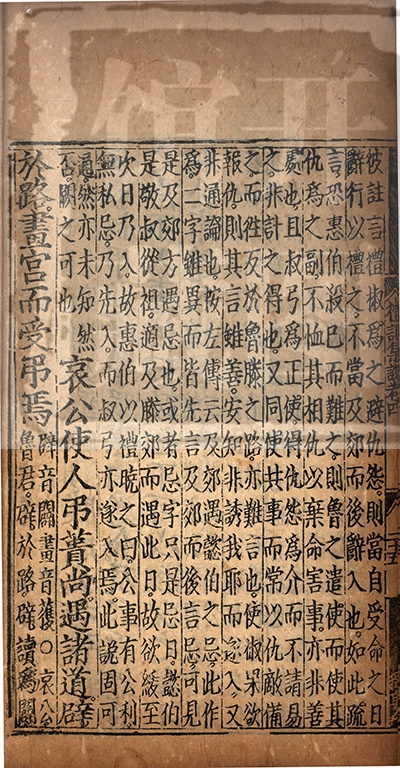 彼註言禮椒為之辟仇怨則當自受命之日
辭行以禮之不當及郊而後辭入也如此疏
言恐惠伯殺已而難之則魯之遣使而使其
仇為之副不恤其相仇以棄命害事亦非善
處也且叔弓為正使得仇怨為介而不請易
之非計之得也又同使共事而常以仇敵備
之而往反於魯滕之路亦難言也使椒果欲
報仇則其言雖善安知非誘我耶而遂入又
非通論也按左傳云及郊遇懿伯之忌此作
為二字雖異而皆先言及郊而後言忌可見
是及郊方遇忌也或者忌字只是忌日懿伯
是敬叔從祖適及滕郊而遇此日故欲緩至
次日乃入故惠伯以禮曉之曰公事有公利
無私忌乃先入而叔弓亦遂入焉此說固可
通然亦未知然
否闕之可也
哀公使人弔蕢尚遇諸道辟
於路畫宮而受弔焉
辟音闢畫音獲○哀公
魯君辟於路辟讀為闢